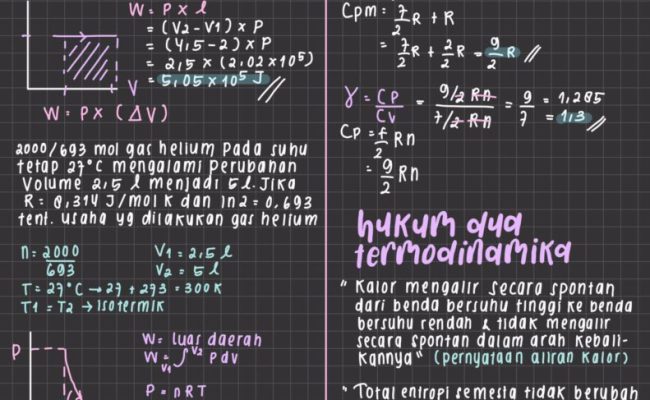 W = P × l
= (V2 - V1) × P
= (4,5 - 2) × P
= 2,5 × (2,02 × 10⁵)
= 5,05 × 10⁵ J
V
W = P × (ΔV)
2000/693 mol gas helium pada suhu
tetap 27°C mengalami perubahan
Volume 2,5 l menjadi 5 l. Jika
R = 8,314 J/mol K dan ln 2 = 0,693
tent. usaha yg dilakukan gas helium
n = 2000/693
V1 = 2,5 l
V2 = 5 l
T = 27°C → 27 + 273 = 300 K
T1 = T2 → isotermik
P
W = luas daerah
W = V1∫V2 P dV
P = nRT
Cpm = 7/2 R + R
= 7/2 R + 2/2 R = 9/2 R
γ = CP/CV = 9/2 Rn / 7/2 Rn = 9/7 = 1,285
= 1,3
Cp = f/2 Rn
= 9/2 Rn
hukum dua
termodinamika
" Kalor mengalir secara spontan
dari benda bersuhu tinggi ke benda
bersuhu rendah & tidak mengalir
secara spontan dalam arah kebali-
kannya " (pernyataan aliran kalor)
" Total entropi semesta tidak berubah